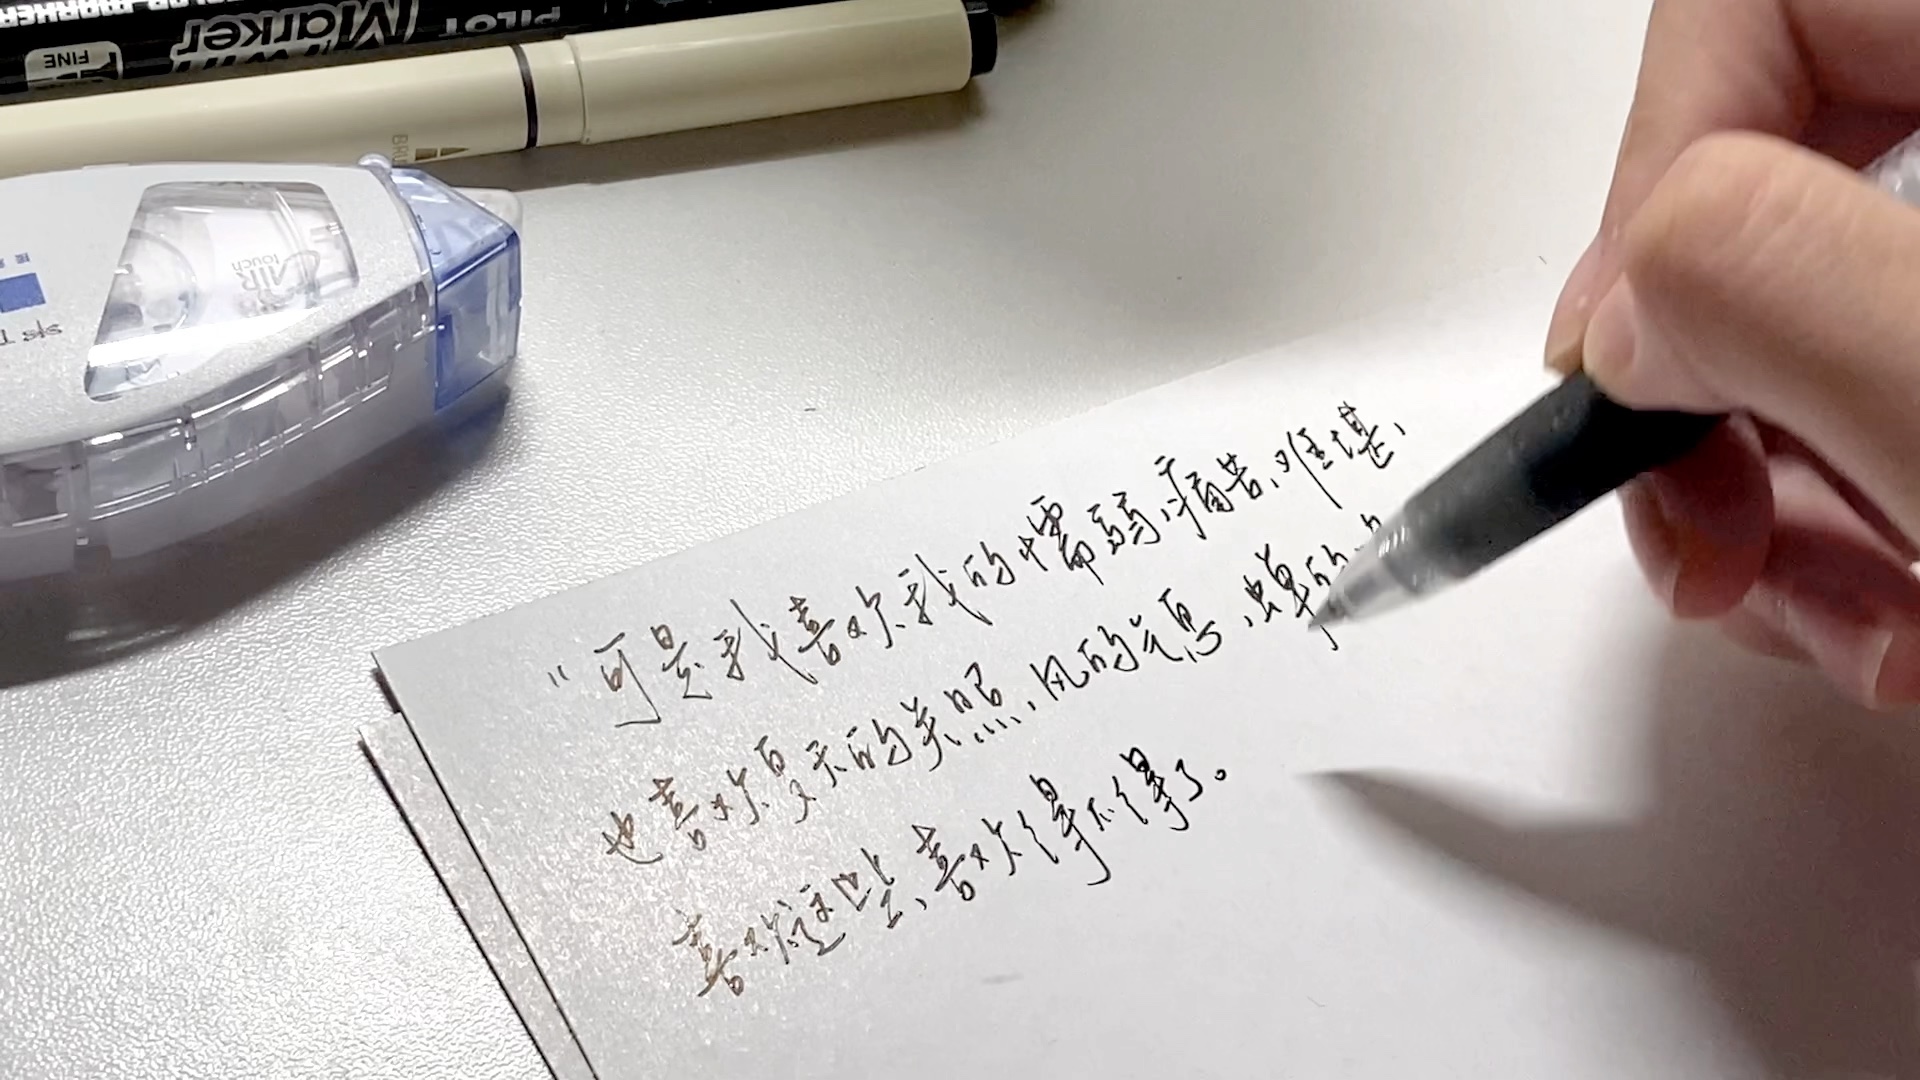 COLOR MARKER
Marker PILOT
FINE
AIR touch
“可是我喜欢我的懦弱、痛苦、难堪、
也喜欢夏天的光照、风的气息、蝉的
喜欢这些、喜欢得不得了。